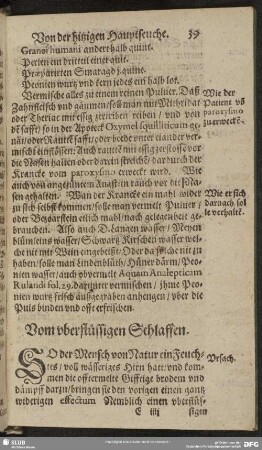 Von der hitzigen Hauptseuche. 39
Granof humani anderthalb quint.
Perlen ein drittel einer quit.
Præparirten Smaragd j. quint.
Peonien wurtz und kern jedes ein halb lot.
Vermische alles zu einem reinen Pulver. Daß
Zahnfleisch und gäumen/soll man mit Methridat
oder Theriac mit essig zerriben reiben / und von
safft/ so in der Apoteck Oxymel squilliticum ge-
nāt/oder Rautē safft/oder beede unter einander ver-
mischt einflössen. Auch rautē mit essig zerstossē vor
die Nasen halten oder darein streichē/ dardurch der
Krancke vom paroxysmo erweckt wird. Wie
auch von angezündtem Anastein rauch vor die Na-
sen gehalten. Wan der Krancke ein mahl wider
zu sich selbst kommen/solle man vermelt Pulver /
oder Bezoarstein etlich mahl/nach gelegenheit ge-
brauchen. Also auch D. Langen wasser / Meyen
blümleins wasser/Schwartz Kirschen wasser wel-
che nit mit Wein angebeitzt/ Oder da solche nit zu
haben/solle man Lindenblüth/Hüner därm/Peo-
nien wasser/auch obvermelt Aquam Analepticam
Rulandi fol. 29. darunter vermischen / ihme Peo-
nien wurtz frisch außgegraben anhengen/ uber die
Puls binden und offt erfrischen.
Wie der
Patient võ
paroxysmo
zuerweckē.
Wie er sich
darnach sol-
le verhaltē.
Vom uberflüssigen Schlaffen.
SO der Mensch von Natur ein Feuch-
tes/ voll wässeriges Hirn hatt/und kom-
men die offtermelte Gifftige brodem und
dämpff darzu/bringen sie den vorigen einen gantz
widerigen effectum Nemblich einen uberflüs-
Ursach.
E iiij sigen
SLUB
DFG